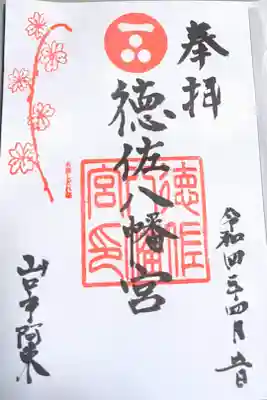 奉拝
徳佐八幡宮
徳佐八幡宮印
令和四年四月
山口市阿東